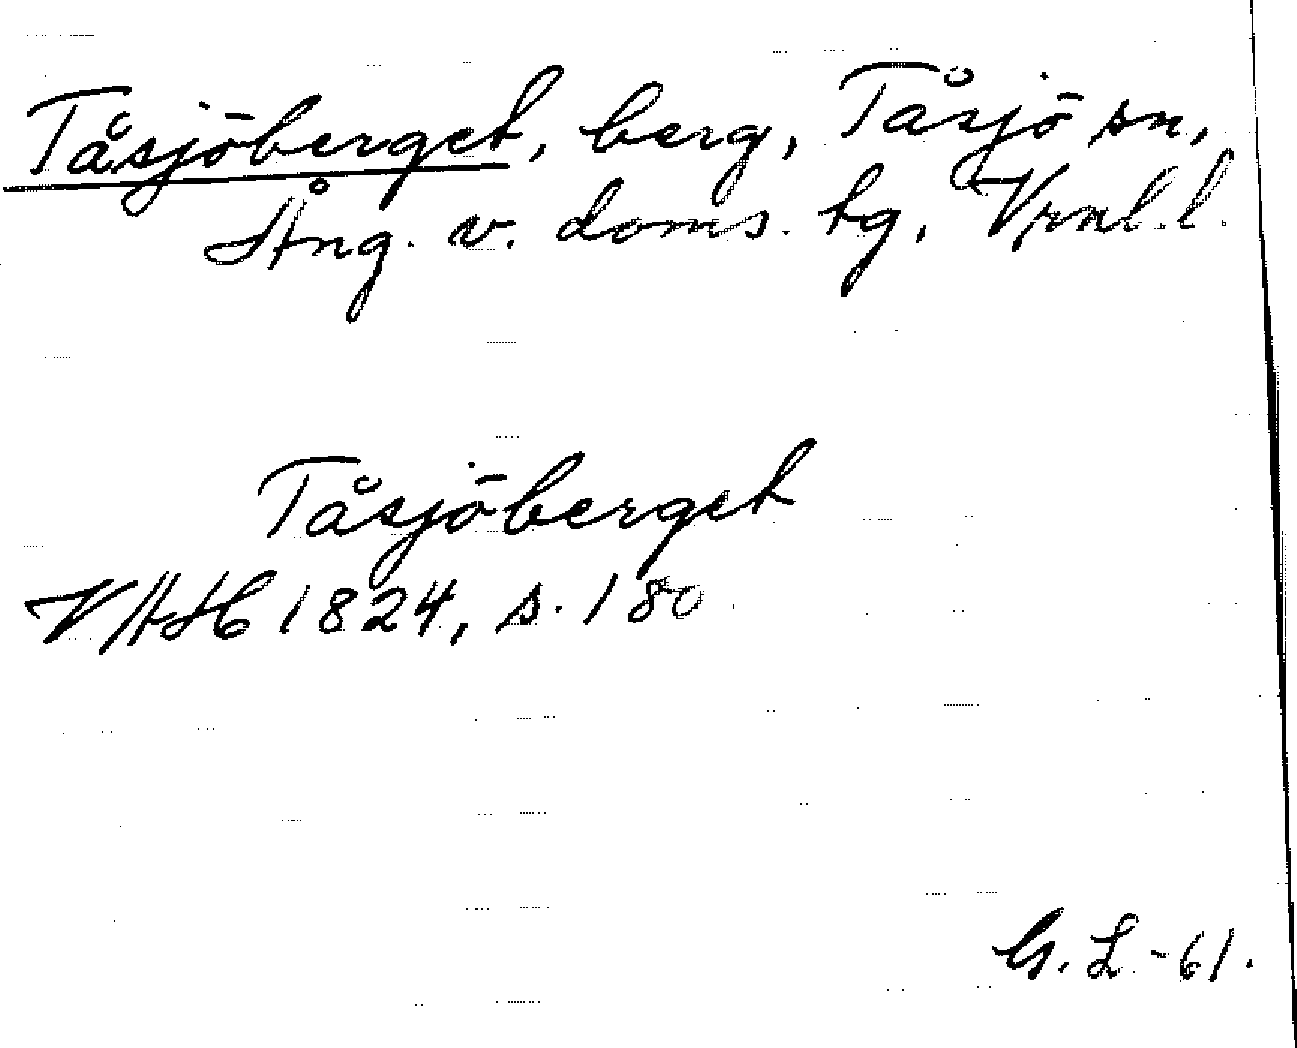 Tåsjöberget, berg, Tåsjö sn,
Ång. v. doms. tg, Vrnl. l.
Tåsjöberget
VAH 1824, s. 180
G. L. -61.